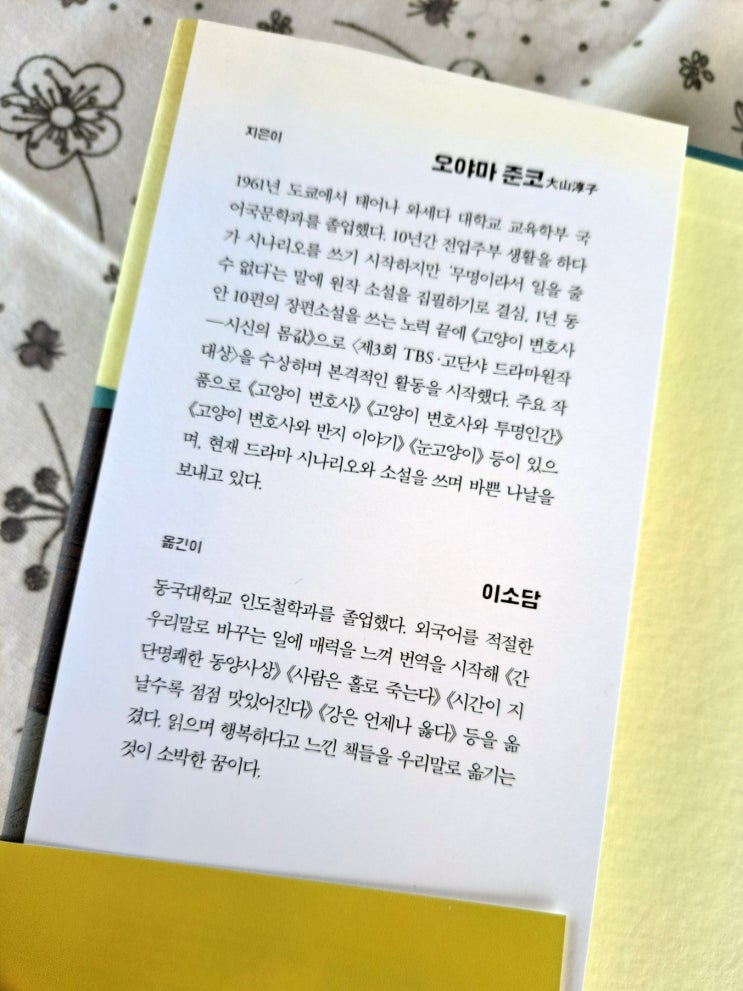 지은이
오야마 준코大山淳子
1961년 도쿄에서 태어나 와세다 대학교 교육학부 국
어국문학과를 졸업했다. 10년간 전업주부 생활을 하다
가 시나리오를 쓰기 시작하지만 '무명이라서 일을 줄
수 없다'는 말에 원작 소설을 집필하기로 결심, 1년 동
안 10편의 장편소설을 쓰는 노력 끝에 《고양이 변호사
―시신의 몸값》으로 〈제3회 TBS·고단샤 드라마원작
대상〉을 수상하며 본격적인 활동을 시작했다. 주요 작
품으로 《고양이 변호사》 《고양이 변호사와 투명인간》
《고양이 변호사와 반지 이야기》 《눈고양이》 등이 있으
며, 현재 드라마 시나리오와 소설을 쓰며 바쁜 나날을
보내고 있다.
옮긴이
이소담
동국대학교 인도철학과를 졸업했다. 외국어를 적절한
우리말로 바꾸는 일에 매력을 느껴 번역을 시작해 《간
단명쾌한 동양사상》 《사람은 홀로 죽는다》 《시간이 지
날수록 점점 맛있어진다》 《강은 언제나 옳다》 등을 옮
겼다. 읽으며 행복하다고 느낀 책들을 우리말로 옮기는
것이 소박한 꿈이다.